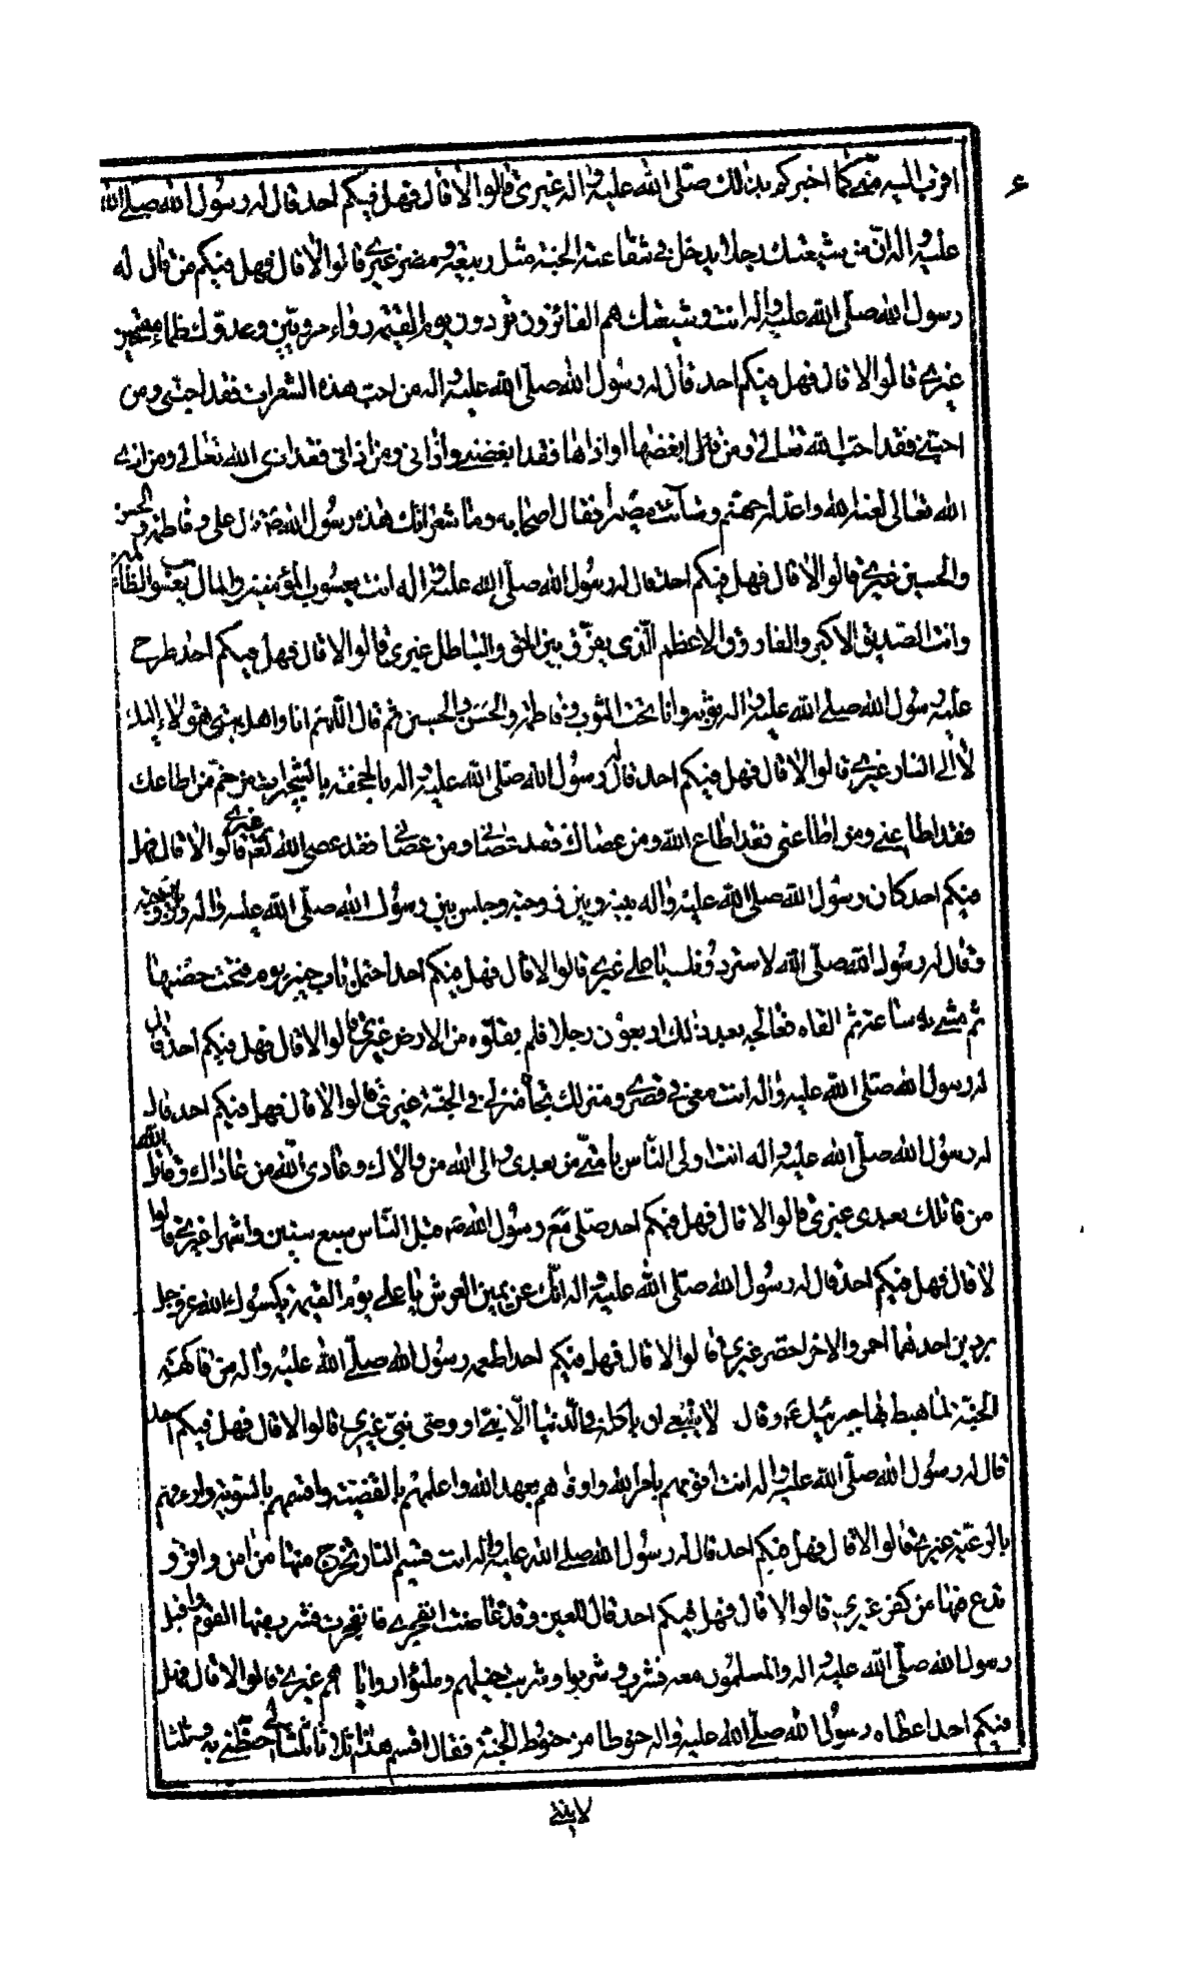 ء
اقرب اليه منى كما اخبركم بذلك صلّى الله عليه واله غيرى قالوا لا قال فهل فيكم احد قال له رسول الله صلى الله
عليه واله ان من شيعتك رجلا يدخل فى شفاعته الجنة مثل ربيعة ومضر غيرى قالوا لا قال فهل فيكم من قال له
رسول الله صلّى الله عليه واله انت وشيعتك هم الفائزون تردون يوم القيمة رواء مرويّين وعدوك ظماء مقمحين
غيرى قالوا لا قال فهل فيكم احد قال له رسول الله صلّى الله عليه واله من احب هذه الشعرات فقد احبنى ومن
احبّنى فقد احبّ الله تعالى ومن ابغضها او اذاها فقد ابغضنى واذانى ومن اذانى فقد اذى الله تعالى ومن اذى
الله تعالى لعنه الله واعد له جهنم وسائت مصيرا فقال اصحابه وما شعراتك هذه يا رسول الله قال على وفاطمة والحسن
والحسين غيرى قالوا لا قال فهل فيكم احد قال له رسول الله صلّى الله عليه واله انت يعسوب المؤمنين والمال يعسوب الظالمين
وانت الصّديق الاكبر والفاروق الاعظم الّذى يفرّق بين الحق والباطل غيرى قالوا لا قال فهل فيكم احد طرح
عليه رسول الله صلى الله عليه واله ثوبه وانا تحت الثوب وفاطمة والحسن والحسين ثم قال اللّهم انا واهل بيتى هؤلاء اليك
لا الى النار غيرى قالوا لا قال فهل فيكم احد قال له رسول الله صلى الله عليه واله بالجحفة بالشجرات من خم من اطاعك
فقد اطاعنى ومن اطاعنى فقد اطاع الله ومن عصاك فقد عصانى ومن عصانى فقد عصى الله تعالى غيرى قالوا لا قال فهل
فيكم احد كان رسول الله صلى الله عليه واله بينه وبين زوجته وجلس بين رسول الله صلّى الله عليه واله وزوجته
وقال له رسول الله صلّى الله لا ستر دونك يا على غيرى قالوا لا قال فهل فيكم احد احتمل باب خيبر يوم فتحت حصنها
ثم مشى به ساعة ثم القاه فعالجه بعد ذلك اربعون رجلا فلم يقلّوه من الارض غيرى قالوا لا قال فهل فيكم احد قال
له رسول الله صلّى الله عليه واله انت معى فى قصرى ومنزلك تجاه منزلى فى الجنّة غيرى قالوا لا قال فهل فيكم احد قال
له رسول الله صلّى الله عليه واله انت اولى الناس بامّتى من بعدى والى الله من والاك وعادى الله من عاداك وقاتل الله
من قاتلك بعدى غيرى قالوا لا قال فهل فيكم احد صلّى مع رسول الله ص قبل الناس سبع سنين واشهرا غيرى قالوا
لا قال فهل فيكم احد قال له رسول الله صلّى الله عليه واله انّك عن يمين العرش يا على يوم القيمة يكسوك الله عز وجل
بردين احدهما احمر والاخر اخضر غيرى قالوا لا قال فهل فيكم احد اطعمه رسول الله صلى الله عليه واله من فاكهة
الجنّة لما هبط بها جبرئيل ع وقال لا ينبغى ان ياكله فى الدنيا الّا نبى او وصى نبى غيرى قالوا لا قال فهل فيكم احد
قال له رسول الله صلّى الله عليه واله انت اقومهم بامر الله واوفاهم بعهد الله واعلمهم بالقضية واقسمهم بالسوية وارءفهم
بالرعيّة غيرى قالوا لا قال فهل فيكم احد قال له رسول الله صلى الله عليه واله انت قسيم النار تخرج منها من امن واقر و
تدع فيها من كفر غيرى قالوا لا قال فهل فيكم احد قال للعين وقد غاضت انفجرى فانفجرت فشرب منها القوم واقبل
رسول الله صلّى الله عليه واله والمسلمون معه فشرب وشربوا وشربت خيلهم وملئوا رواياهم غيرى قالوا لا قال فهل
فيكم احد اعطاه رسول الله صلى الله عليه واله حنوطا من حنوط الجنّة فقال اقسم هذا اثلاثا ثلثا لى حنطنى به وثلثا
لابنتى